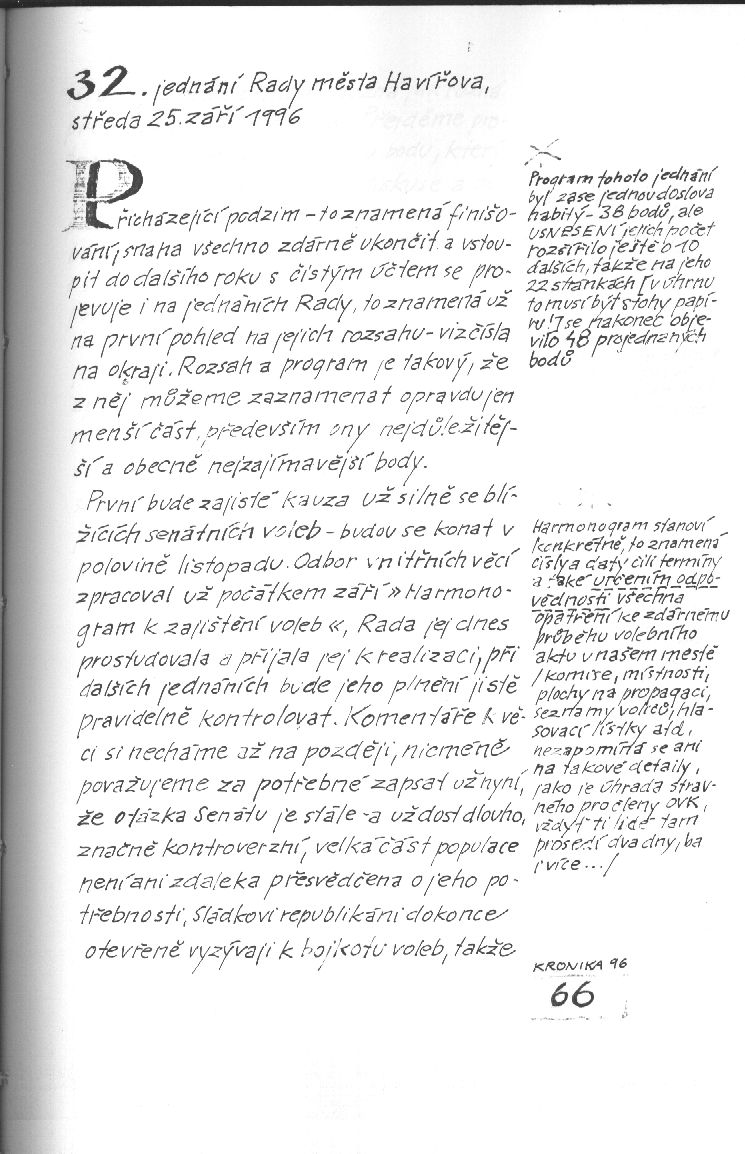 32. jednání Rady města Havířova,
středa 25. září 1996
Přicházející podzim – to znamená finišo-
vání, snaha všechno zdárně ukončit a vstou-
pit do dalšího roku s čistým účtem se pro-
jevuje i na jednáních Rady, to znamená už
na první pohled na jejich rozsahu – viz čísla
na okraji. Rozsah a program je takový, že
z něj můžeme zaznamenat opravdu jen
menší část, především ony nejdůležitěj-
ší a obecně nejzajímavější body.
První bude zajisté kauza už silně se blí-
žících senátních voleb – budou se konat v
polovině listopadu. Odbor vnitřních věcí
zpracoval už počátkem září » Harmono-
gram k zajištění voleb «, Rada jej dnes
prostudovala a přijala jej k realizaci, při
dalších jednáních bude jeho plnění jistě
pravidelně kontrolovat. Komentáře k vě-
ci si necháme až na později, nicméně
považujeme za potřebné zapsat už nyní,
že otázka Senátu je stále – a už dost dlouho,
značně kontroverzní, velká část populace
není ani zdaleka přesvědčena o jeho po-
třebnosti, Sládkovi republikáni dokonce
otevřeně vyzývají k bojkotu voleb, takže
Program tohoto jednání
byl zase jednou doslova
nabitý – 38 bodů, ale
USNESENÍ jejich počet
rozšířilo ještě o 10
dalších, takže na jeho
22 stránkách / v úhrnu
to musí být stohy papí-
ru! / se nakonec obje-
vilo 48 projednaných
bodů
Harmonogram stanoví
konkrétně, to znamená
čísly a daty čili termíny
a také určením odpo-
vědnosti všechna
opatření ke zdárnému
průběhu volebního
aktu v našem městě
/ komise, místnosti,
plochy na propagaci,
seznamy voličů, hla-
sovací lístky atd.,
nezapomíná se ani
na takové detaily,
jako je úhrada strav-
ného pro členy OVK,
vždyť ti lidé tam
prosedí dva dny, ba
i více ... /
KRONIKA 96
66